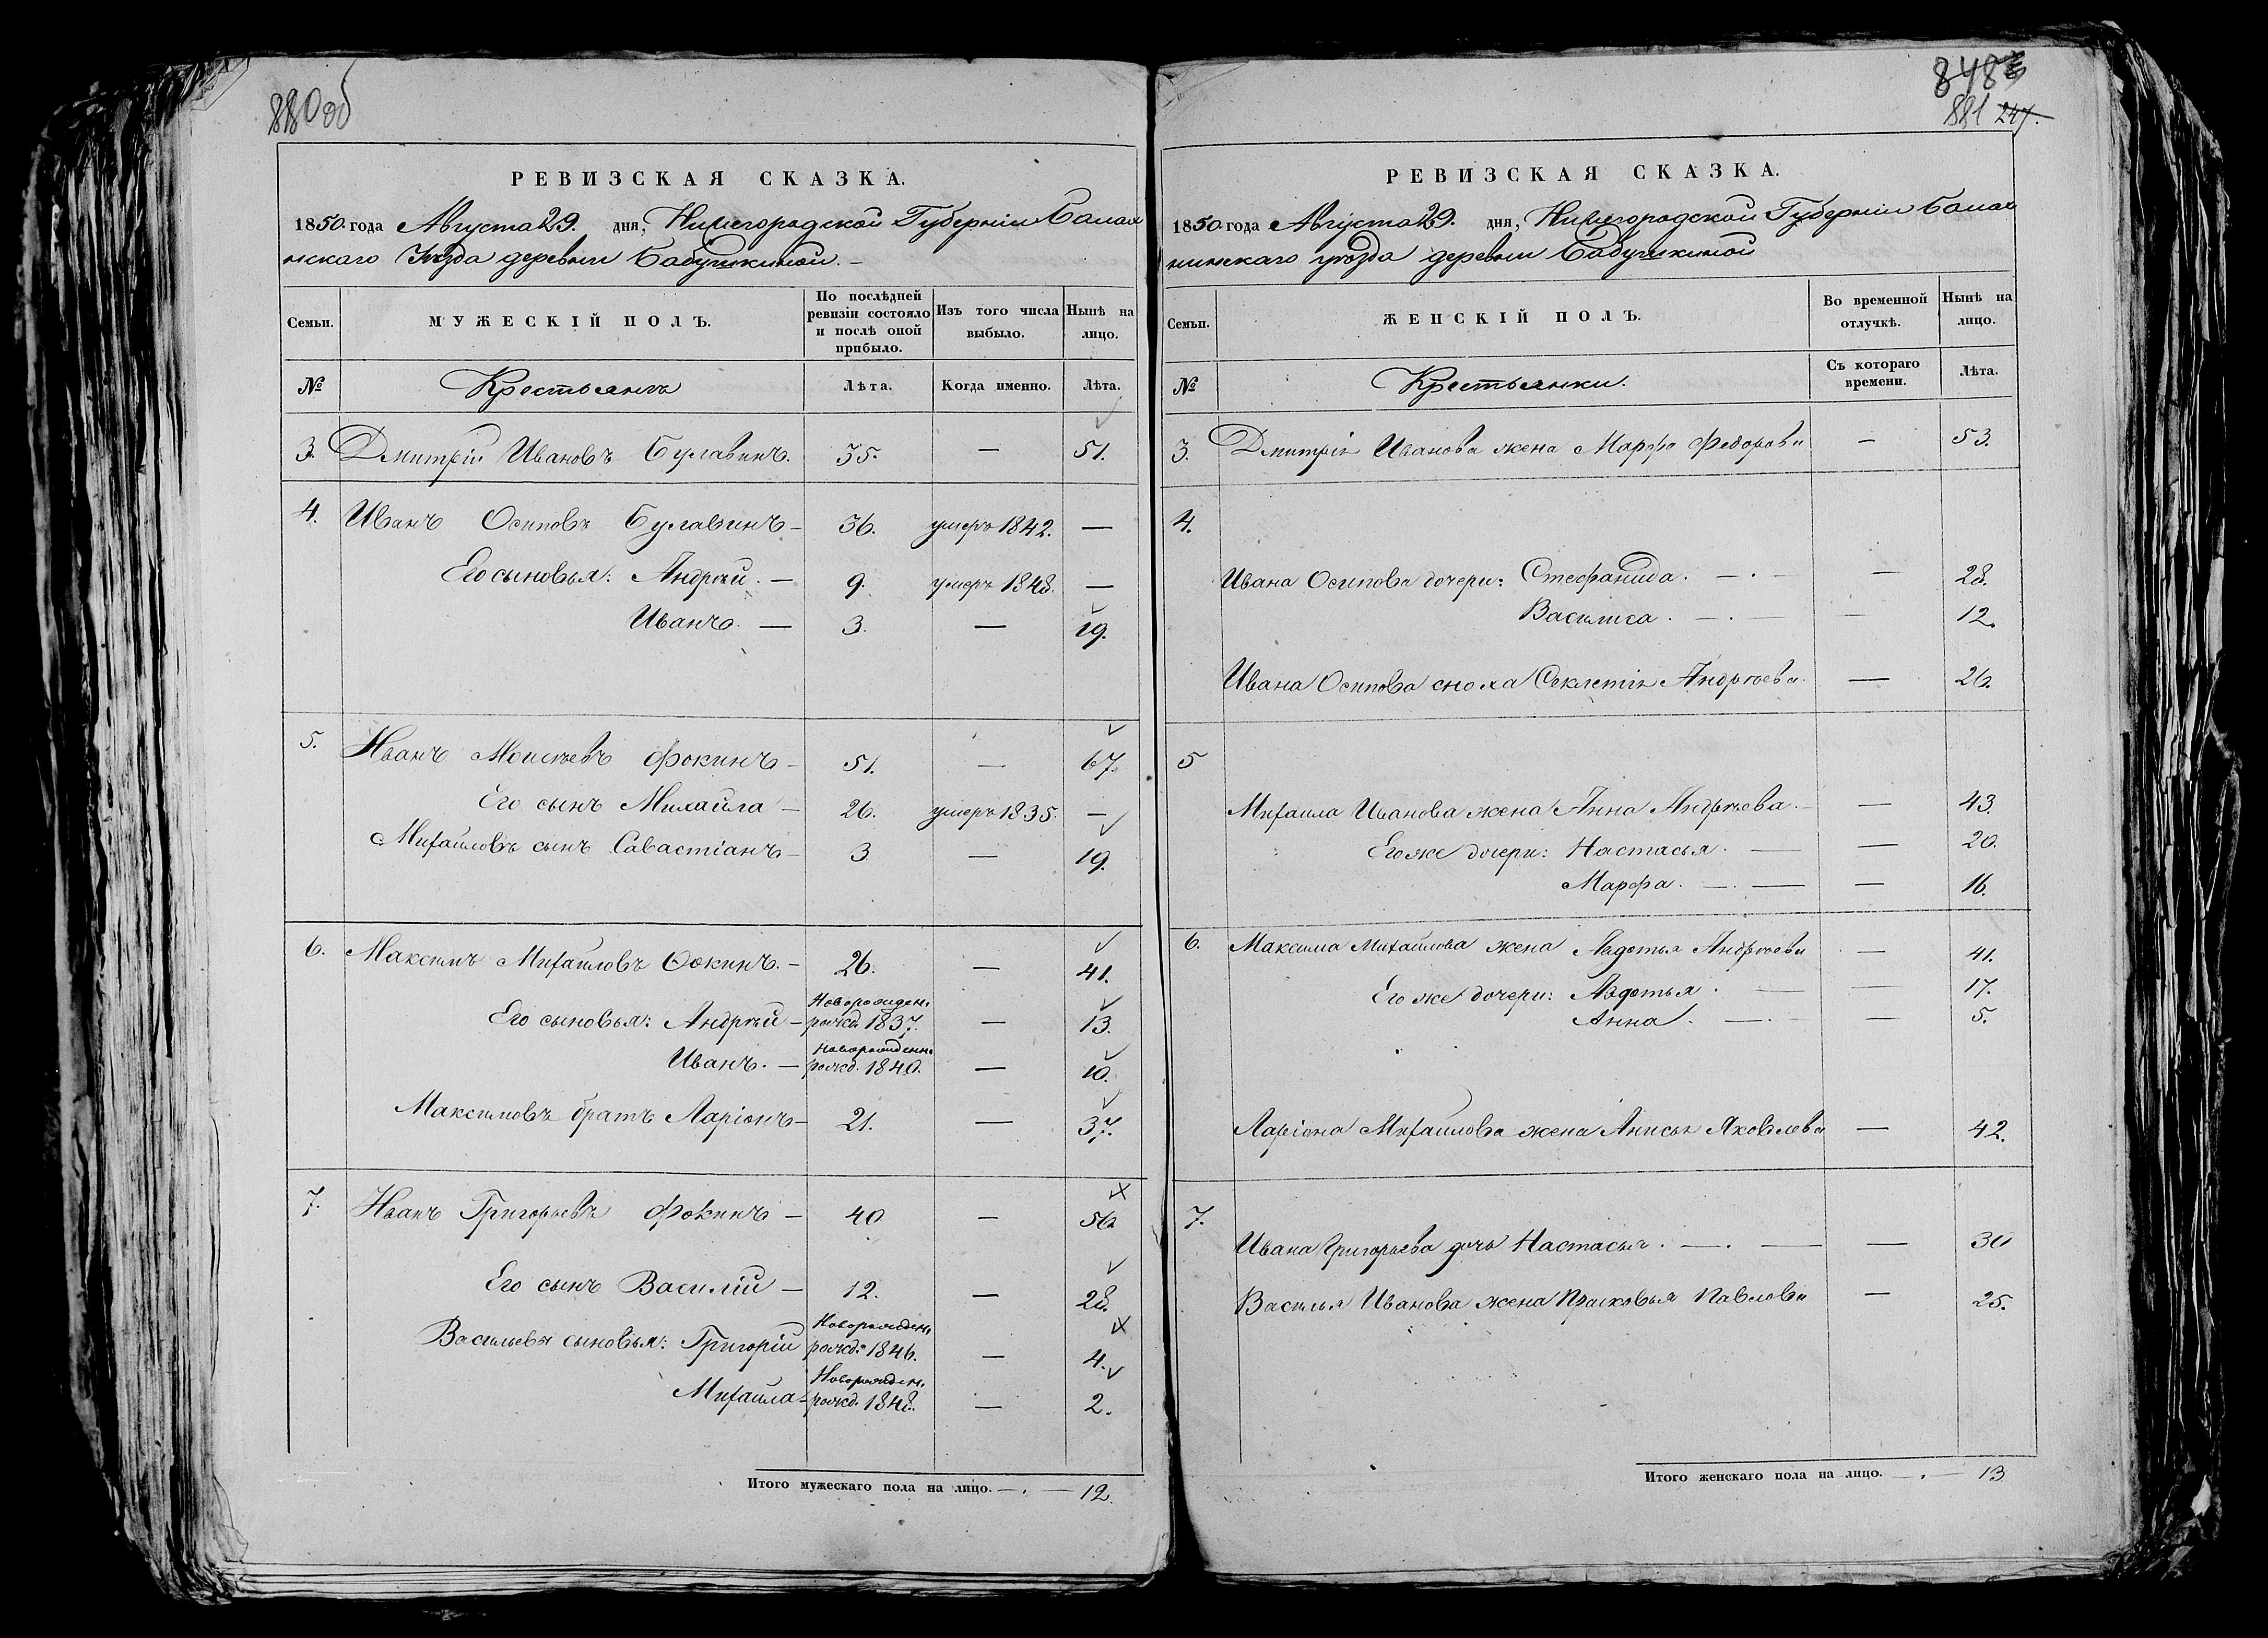 880 об
РЕВИЗСКАЯ СКАЗКА.
1850 года Августа 29. дня, Нижегородской Губерніи Балах
нскаго Уѣзда деревни Бабушкиной. —
Семьи.
МУЖЕСКІЙ ПОЛЪ.
По послѣдней ревизіи состояло и послѣ оной прибыло.
Изъ того числа выбыло.
Нынѣ на лицо.
№ Крестьянъ Лѣта. Когда именно. Лѣта.
3. Дмитрій Ивановъ Булавинъ. 35. — 51.
4. Иванъ Осиповъ Булавинъ — 36. умеръ 1842. —
Его сыновья: Андрей. — 9. умеръ 1848. —
Иванъ. — 3. — 19.
5. Иванъ Моисѣевъ Фокинъ — 51. — 67.
Его сынъ Михайла — 26. умеръ 1835. —
Михайловъ сынъ Савастіанъ — 3 — 19.
6. Максимъ Михайловъ Фокинъ. — 26. — 41.
Его сыновья: Андрѣй — Новорожден. рожд. 1837. — 13.
Иванъ. — Новорожденн. рожд. 1840. — 10.
Максимовъ братъ Ларіонъ — 21. — 37.
7. Иванъ Григорьевъ Фокинъ — 40. — 56
Его сынъ Василій — 12. — 28.
Васильевы сыновья: Григорій Новорожден. рожд. 1846. — 4.
Михайла — Новорожден. рожд. 1848. — 2.
Итого мужескаго пола на лицо. — . — 12.
848
881 247.
РЕВИЗСКАЯ СКАЗКА.
1850 года Августа 29. дня, Нижегородской Губерніи Балах
нинскаго уѣзда деревни Бабушкиной
Семьи.
ЖЕНСКІЙ ПОЛЪ.
Во временной отлучкѣ.
Нынѣ на лицо.
№ Крестьянки. Съ котораго времени. Лѣта.
3. Дмитрія Иванова жена Марфа Федорова — 53.
4.
Ивана Осипова дочери: Стефанида. — . — — 28.
Василиса. — . — — 12.
Ивана Осипова сноха Секлетія Андрѣева. — 26.
5
Михаила Иванова жена Анна Андрѣева. — — 43.
Его же дочери: Настасья. — — 20.
Марфа. — . — — 16.
6. Максима Михайлова жена Авдотья Андрѣева — 41.
Его же дочери: Авдотья. — — 17.
Анна. — . — — 5.
Ларіона Михайлова жена Анисья Яковлева — 42.
7.
Ивана Григорьева дочь Настасья. — . — — 30
Василья Иванова жена Прасковья Павлова — 25.
Итого женскаго пола на лицо. — . — 13